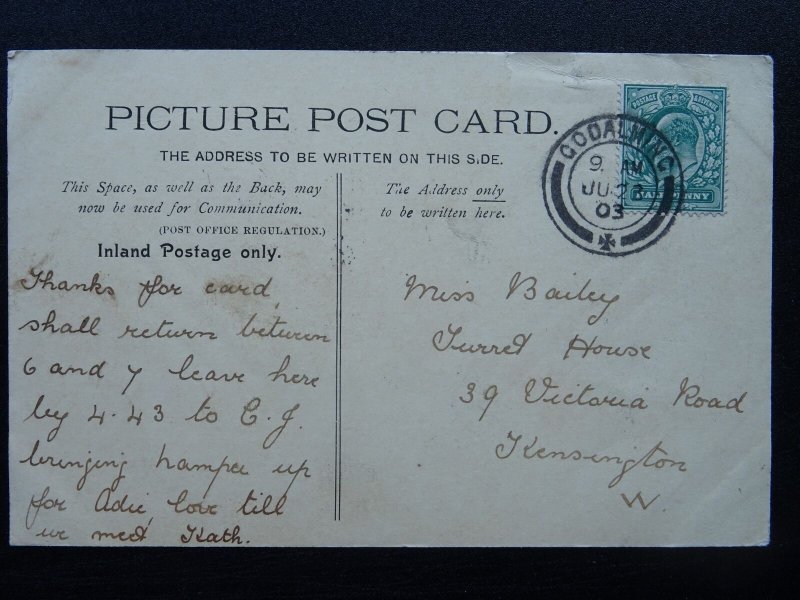 PICTURE POST CARD.
THE ADDRESS TO BE WRITTEN ON THIS SIDE.
This Space, as well as the Back, may
now be used for Communication.
(POST OFFICE REGULATION.)
Inland Postage only.
The Address only
to be written here.
POSTAGE & REVENUE
HALFPENNY
GODALMING
9. AM
JU 28
03
Thanks for card,
shall return between
6 and 7 leave here
by 4.43 to C.J.
bringing hamper up
for Adie, love till
we meet Kath.
Miss Bailey
Turret House
39 Victoria Road
Kensington
W.